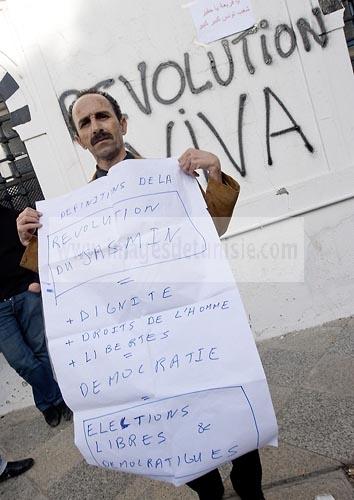 يا حقير
شعب تونس كبير كبير
REVOLUTiON
ViVA
DEFINITINS DE LA
REVOLUTION
DU JASMIN
=
+ DIGNITE
+ DROITS DE L'HOMME
+ LIBERTES
=
DEMOCRATIE
=
ELECTIONS
LIBRES &
DEMOCRATIQUES
www.imagesdetunisie.com